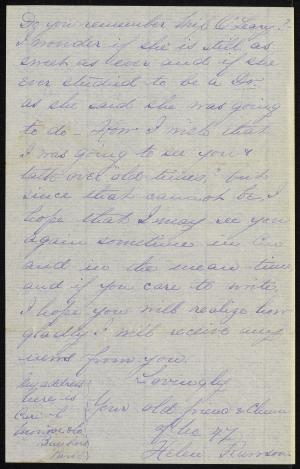 Do you remember Miss O'Leary?
I wonder if she is still as
sweet as ever and if she
ever studied to be a Dr.
as she said she was going
to do - How I wish that
I was going to see you &
talk over "old times," but
since that cannot be, I
hope that I may see you
again sometime in
and in the mean time,
and if you care to write,
I hope you will realize how
gladly I will receive any
news from you.
Lovingly
Your old friend & Chum
of the 47
Helen
My address
here is
Care of